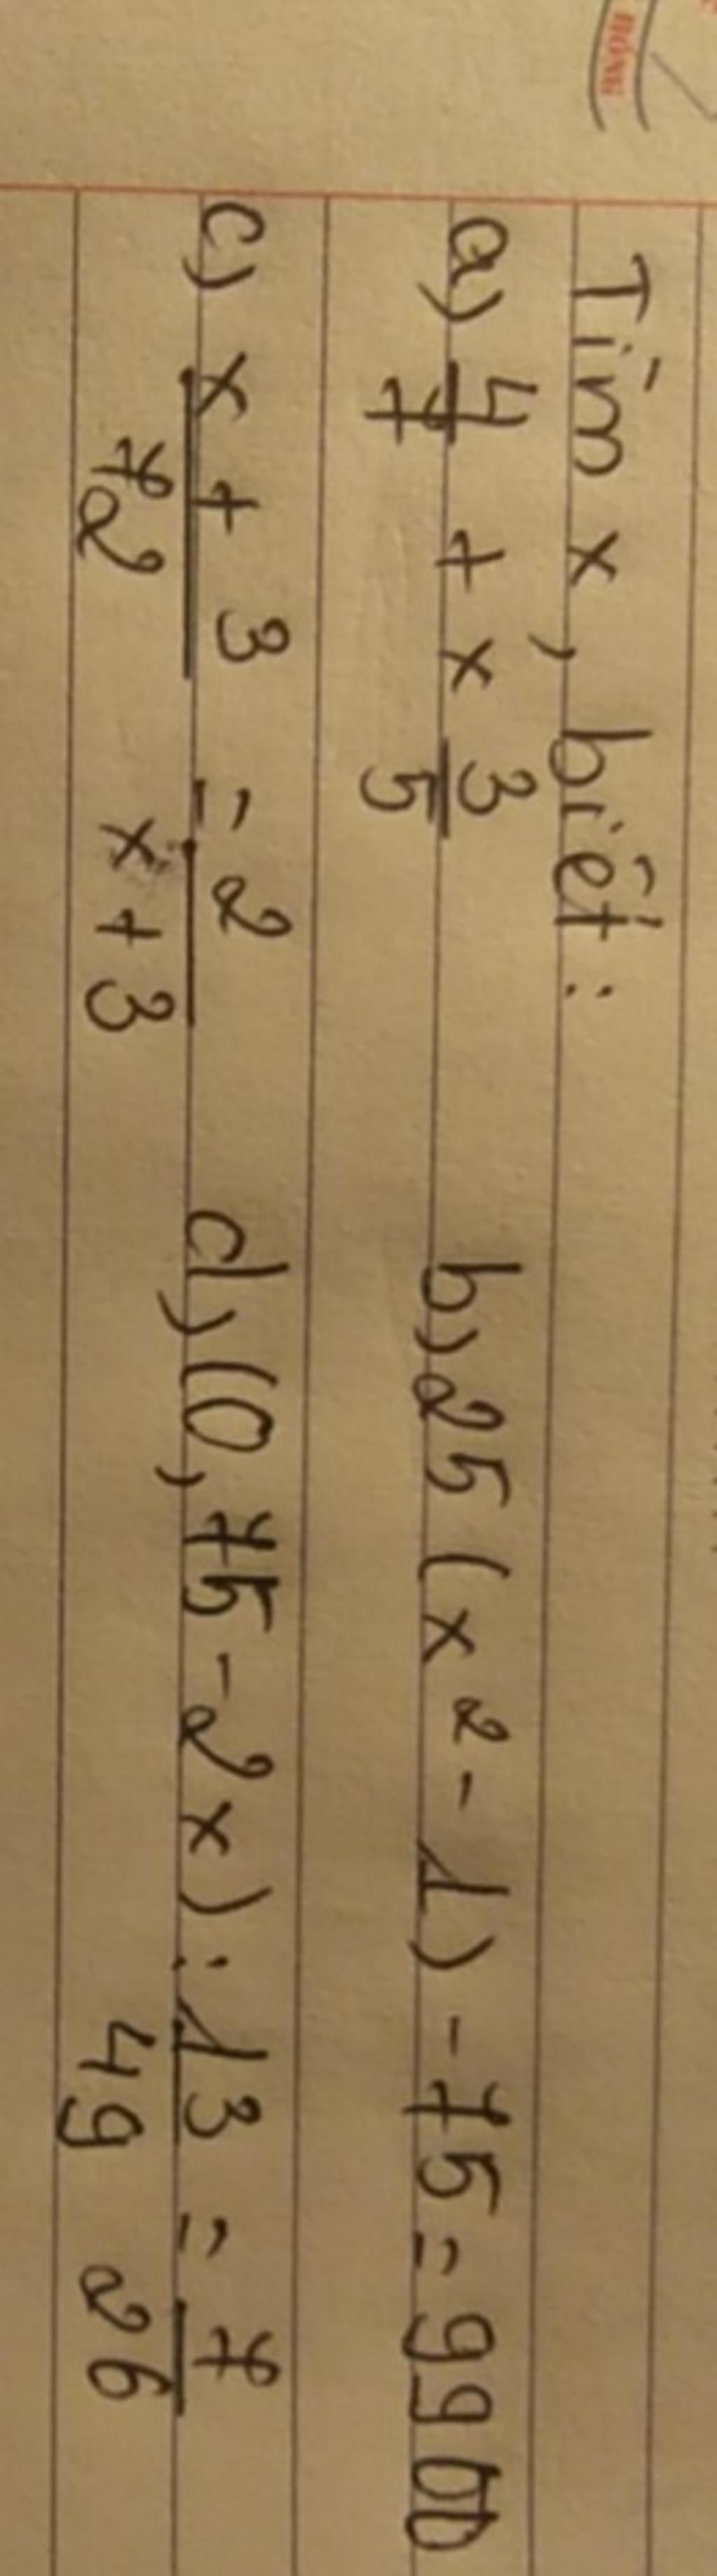 Tìm x, biết:
a) 4/7 + x 3/5 b) 25 (x² - 1) - 75 = 9900
c) x + 3/72 = 2/x + 3 d) (0,75 - 2x) : 13/49 = 7/26